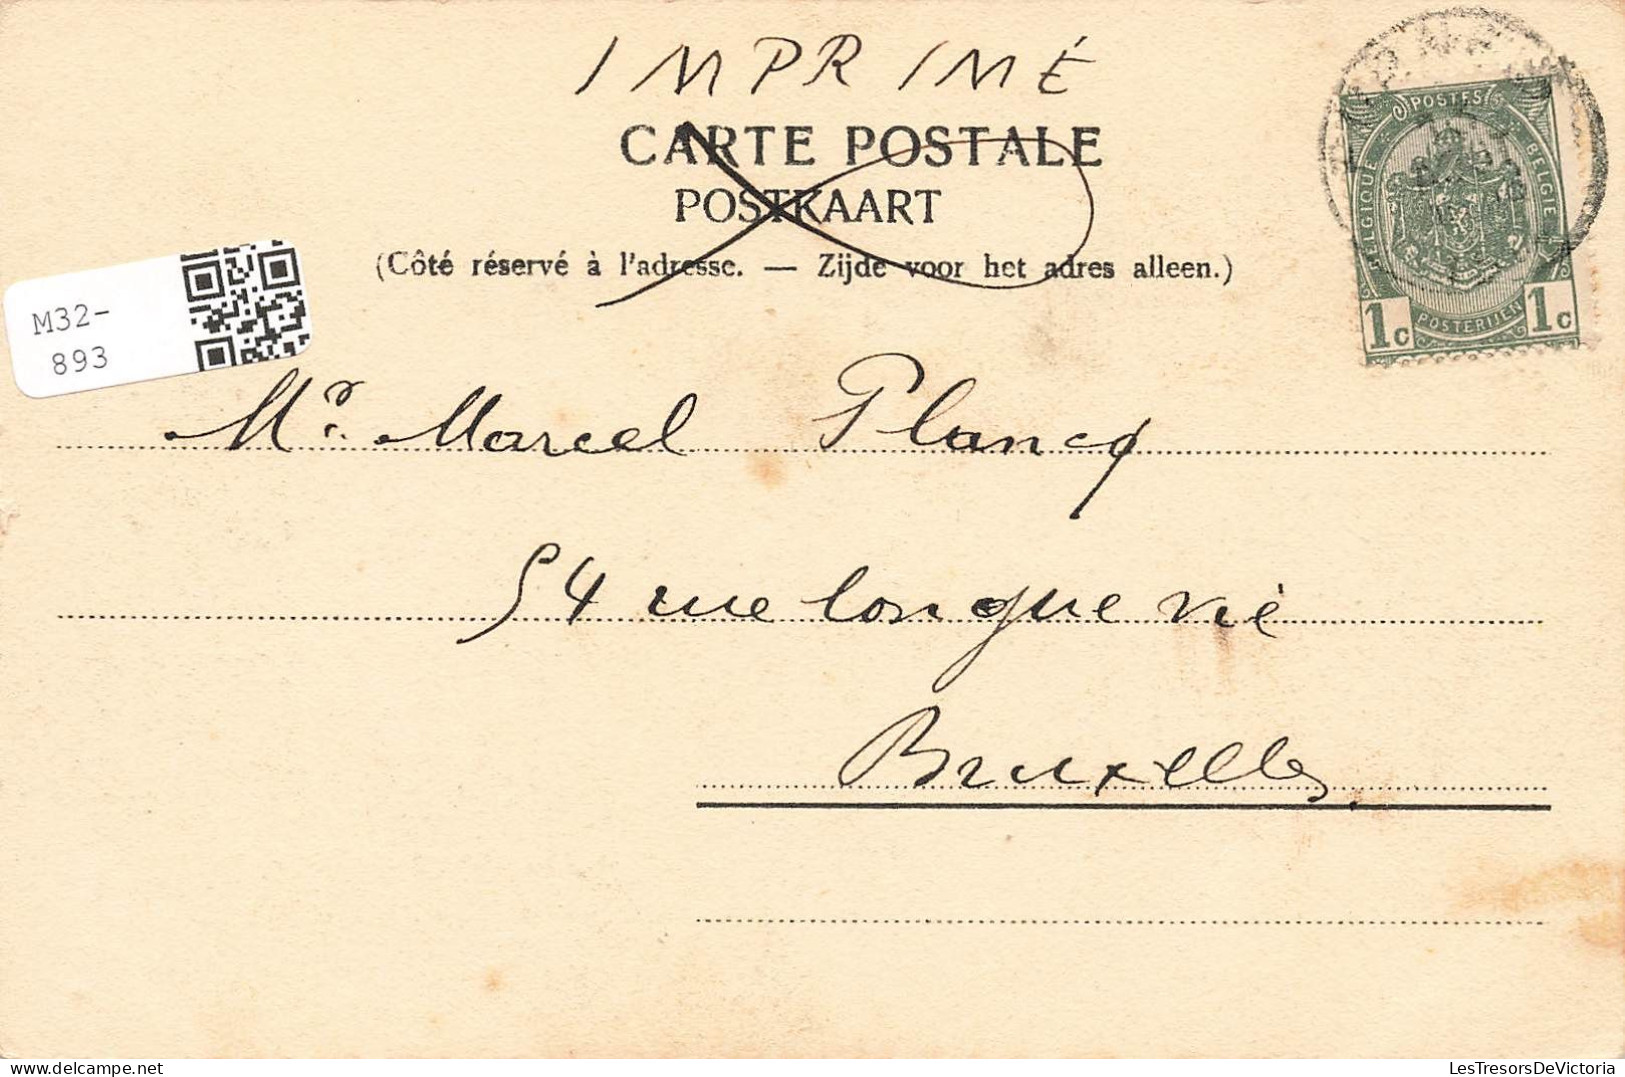 IMPRIMÉ
CARTE POSTALE
POSTKAART
(Côté réservé à l'adresse. — Zijde voor het adres alleen.)
POSTES
BELGIQUE
BELGIE
POSTERIJEN
1c 1c
M32-
893
Mr. Marcel Plancq
54 rue longue vie
Bruxelles.
LesTresorsDeVictoria